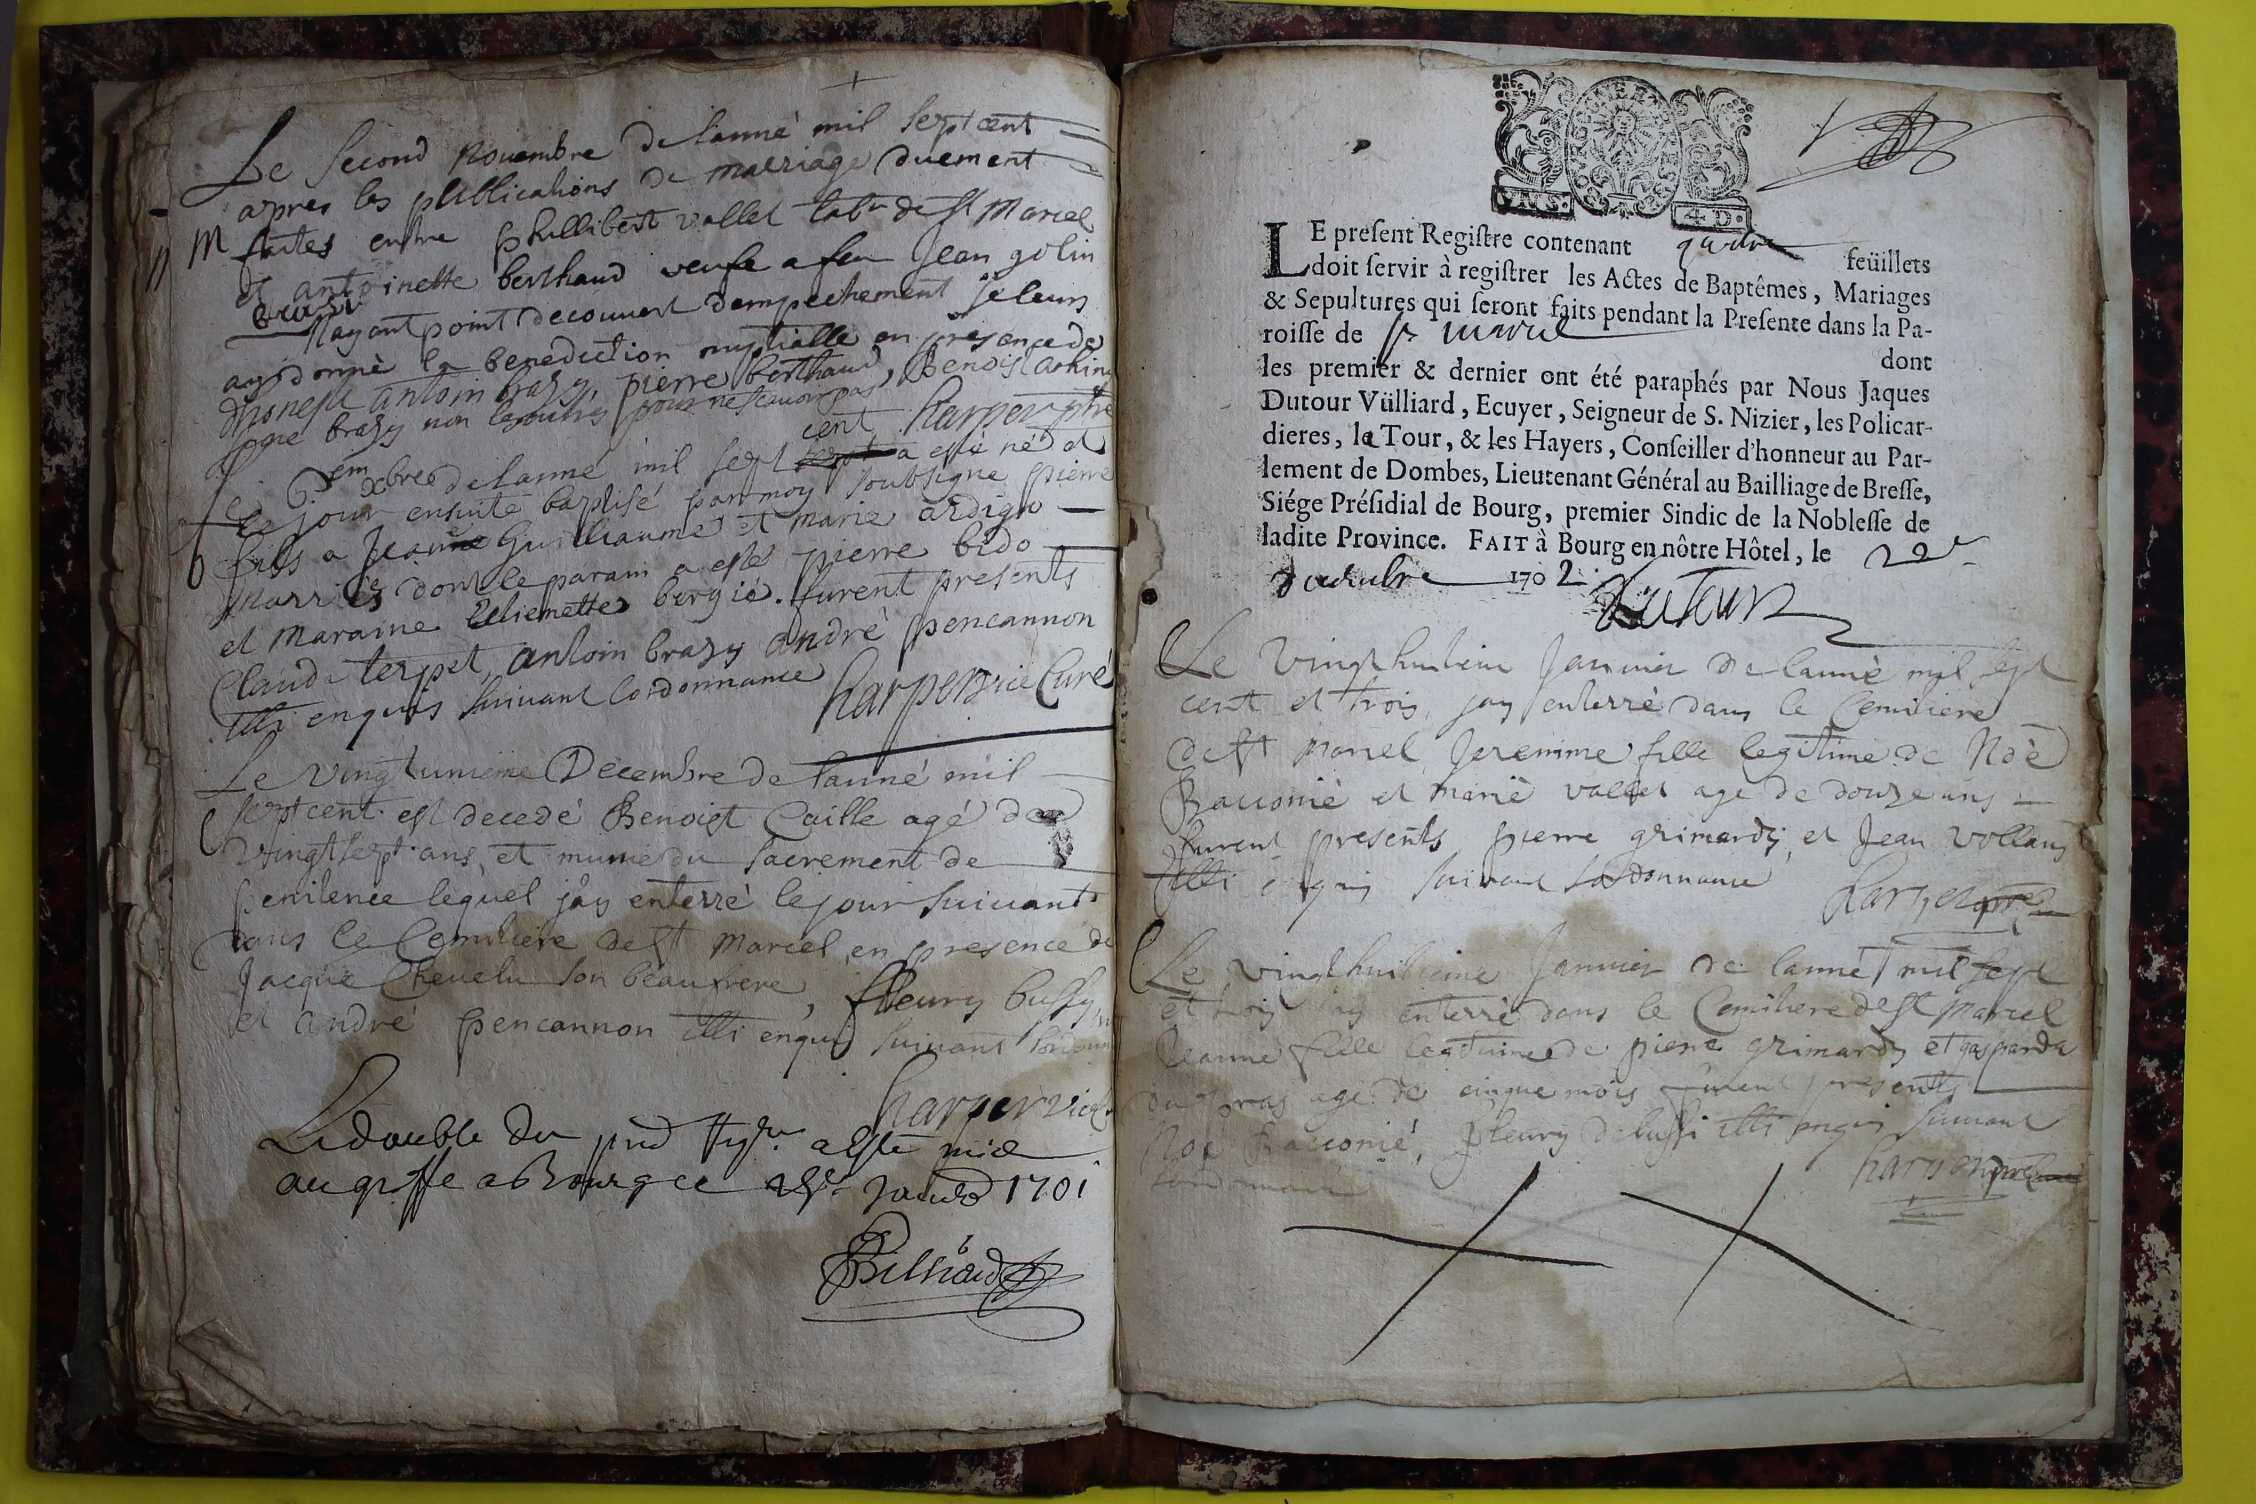 Le second novembre de lanné mil sept cent
apres les publications de marriage duement
M faites entre phillibert vallet lab.r de st Marcel
et antoinette berthaud veufe a feu Jean golin
Nayant point decouvert dempechement je leurs
ay donné la benediction nuptialle en presence de
dhoneste antoin brazy, pierre berthaud, Benoist
brazy non pour ne scavoir pas
cent harper ptre
Le bre de lanné mil sept a esté né et
le jour ensuite baptisé par moy soubsigne pierre
b fils a Jean Guilliaume et marie ardign
marriés dont le parain a esté pierre bido
et maraine Estiemette bergié. furent presents
Claude terpet, antoin brazy andré pencannon
illi enquis suivant lordonnance harper vic Curé
Le vingtunieme Decembre de lanné mil
sept cent est decedé Benoist Caille agé de
vingt sept ans, et munie du sacrement de
penitence lequel jay enterré le jour suivant
dans le Cemitiere de st marcel, en presence de
Jacque Chevelu son beaufrere, fleury bussy
et andré pencannon illi enquis suivant
harper vic
Le double du pnt Regre a esté mis
au greffe a Bourg ce janvr 1701
Bilhiard
4 D.
LE present Registre contenant quatre feüillets
doit servir à registrer les Actes de Baptêmes, Mariages
& Sepultures qui seront faits pendant la Presente dans la Pa-
roisse de st marcel dont
les premier & dernier ont été paraphés par Nous Jaques
Dutour Vülliard, Ecuyer, Seigneur de S. Nizier, les Policar-
dieres, la Tour, & les Hayers, Conseiller d'honneur au Par-
lement de Dombes, Lieutenant Général au Bailliage de Bresse,
Siége Présidial de Bourg, premier Sindic de la Noblesse de
ladite Province. FAIT à Bourg en nôtre Hôtel, le 22e
1702.
DuTour
Le vingthuitieme Janvier de lanné mil sept
cent et trois, jay enterré dans le Cemitiere
de st marcel Jeremme fille legitime de Noè
Bacconié et marie vallet age de douze ans
furent presents pierre grimardy et Jean vollant
illi enquis suivant lordonnance
harper ptre
Le vingthuitieme Janvier de lanné mil sept
et trois jay enterré dans le Cemitiere de st Marcel
Jeanne fille legitime de pierre grimardy et gasparda
du pras age de cinque mois furent presents
Noe Bacconié, fleury d bussi illi enquis suivant
lordonnance harper ptre